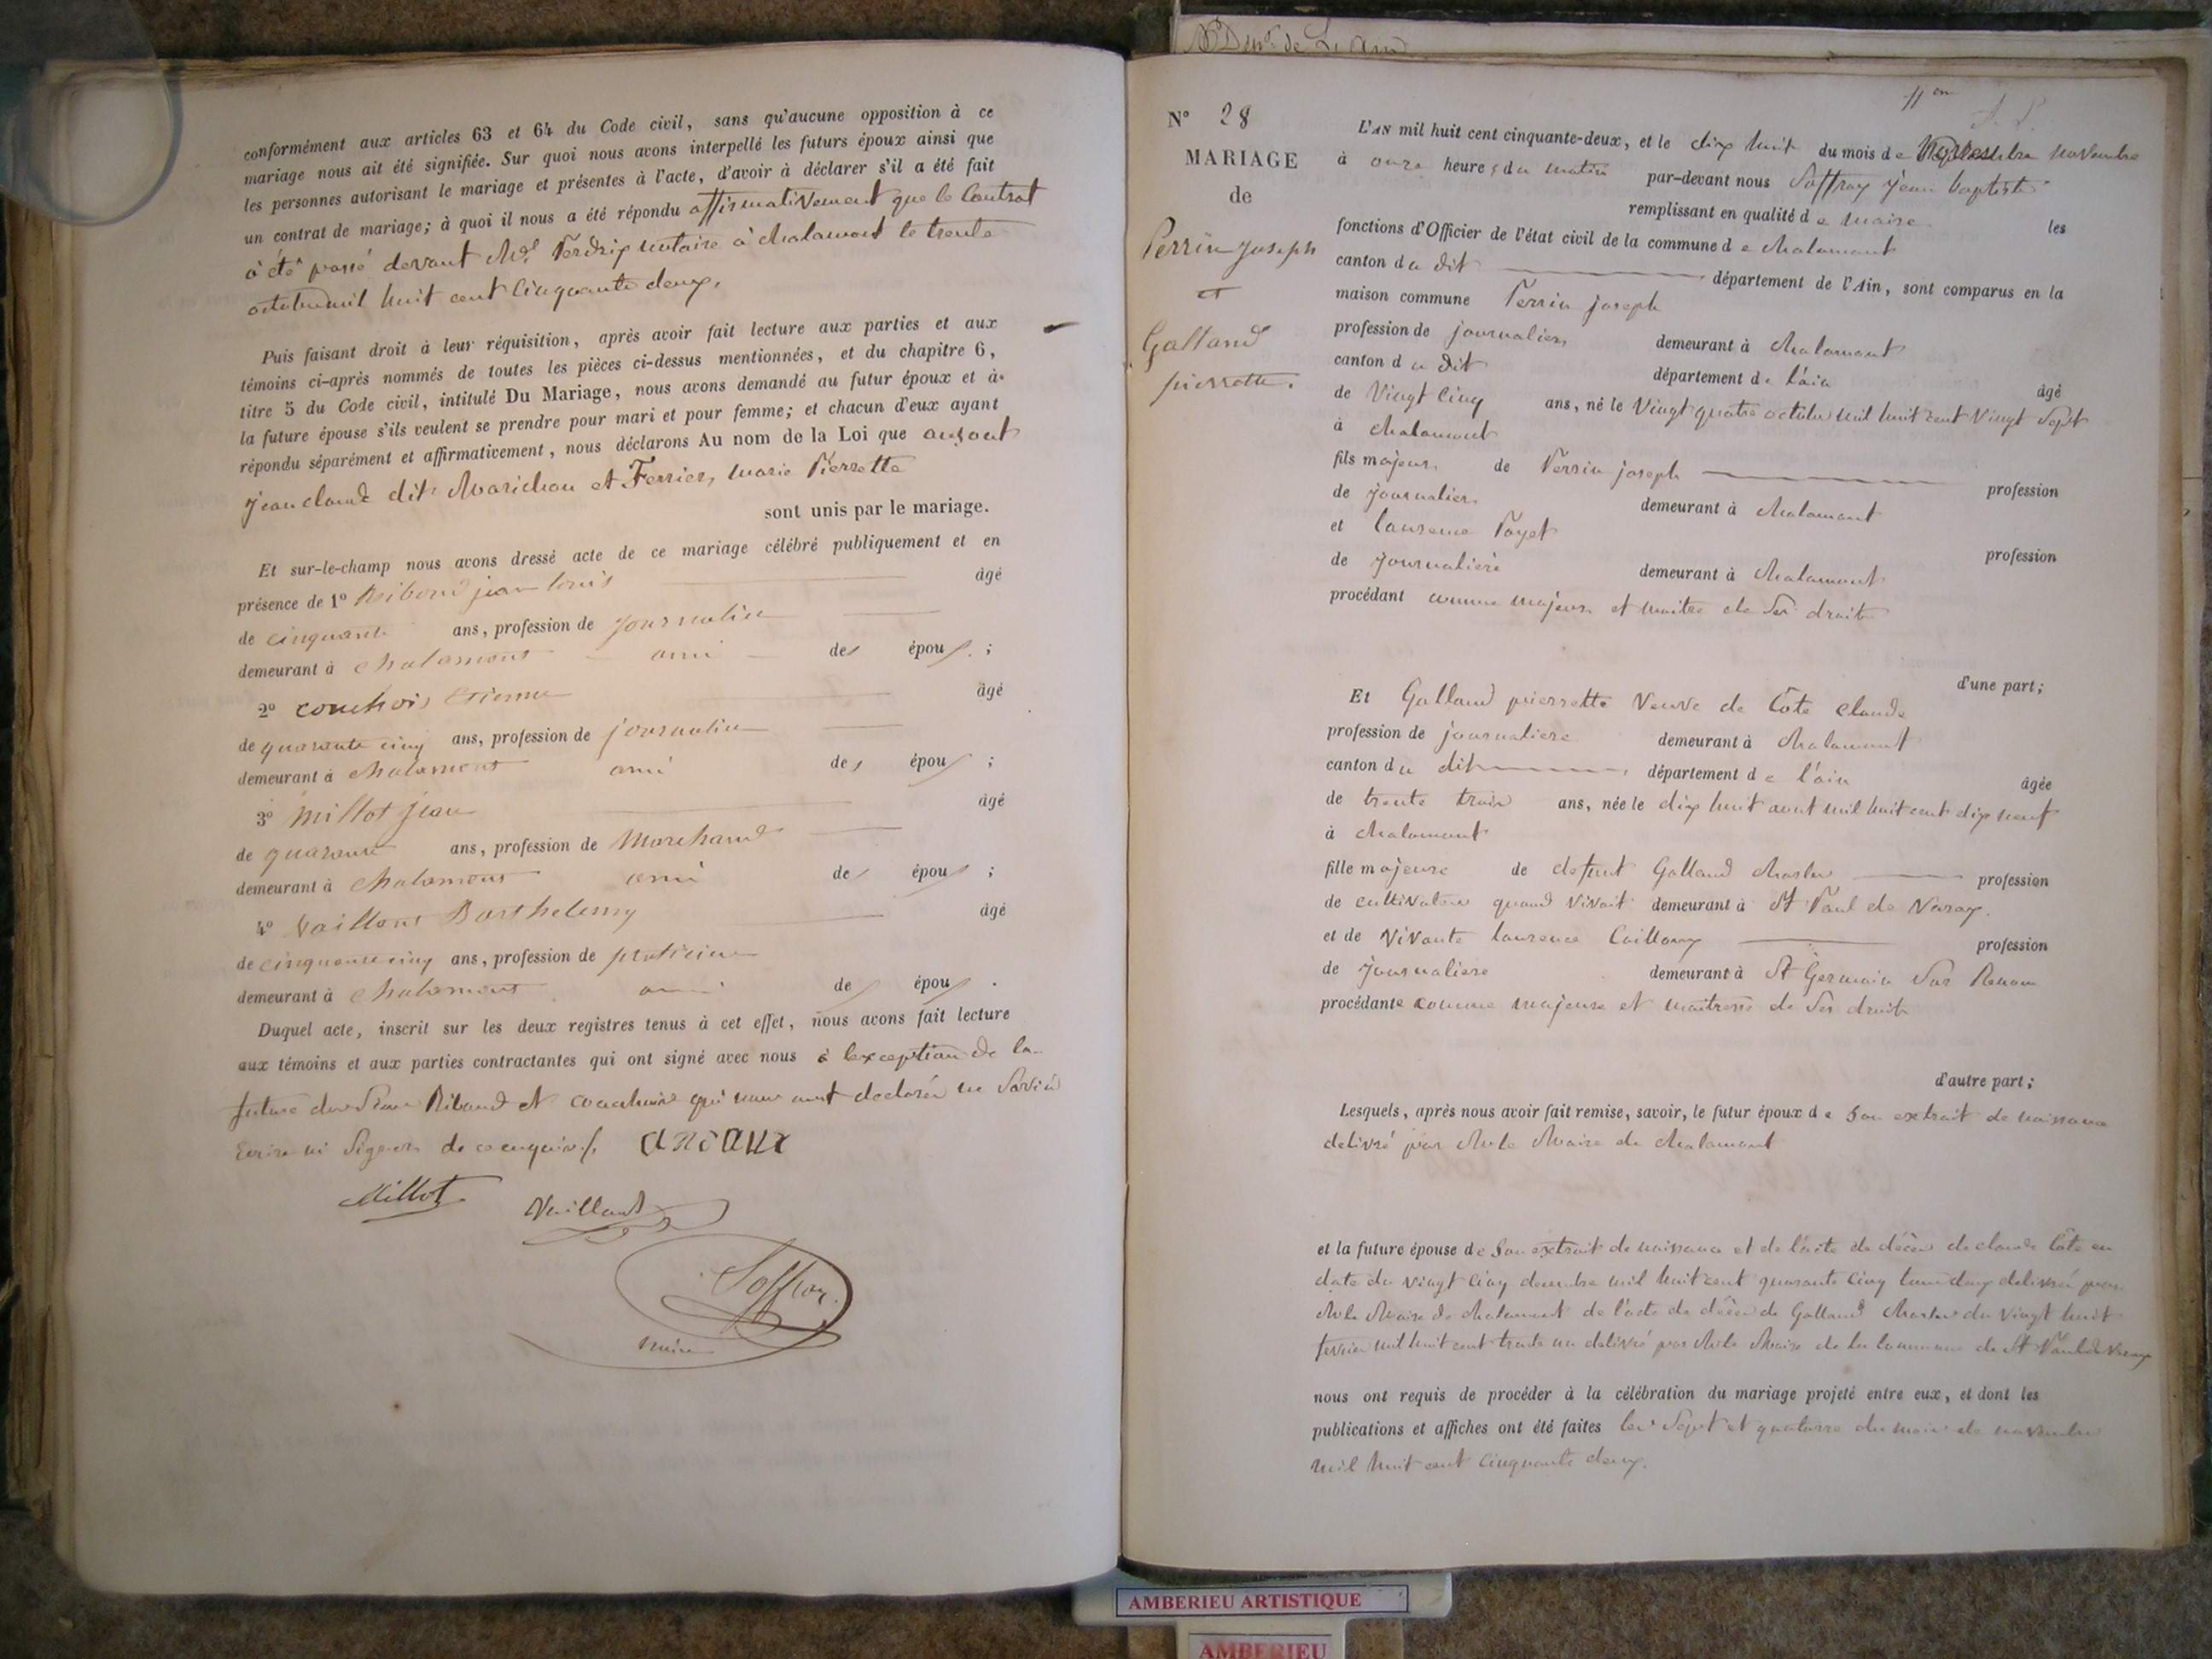 conformément aux articles 63 et 64 du Code civil, sans qu'aucune opposition à ce
mariage nous ait été signifiée. Sur quoi nous avons interpellé les futurs époux ainsi que
les personnes autorisant le mariage et présentes à l'acte, d'avoir à déclarer s'il a été fait
un contrat de mariage; à quoi il nous a été répondu affirmativement que le Contrat
à été passé devant notaire à chalamont le trente
octobre mil huit cent Cinquante deux.
Puis faisant droit à leur réquisition, après avoir fait lecture aux parties et aux
témoins ci-après nommés de toutes les pièces ci-dessus mentionnées, et du chapitre 6,
titre 5 du Code civil, intitulé Du Mariage, nous avons demandé au futur époux et à
la future épouse s'ils veulent se prendre pour mari et pour femme; et chacun d'eux ayant
répondu séparément et affirmativement, nous déclarons Au nom de la Loi que
jean claude dit et Ferrier marie Pierrette
sont unis par le mariage.
Et sur-le-champ nous avons dressé acte de ce mariage célébré publiquement et en
présence de 1° Reiboud jean louis âgé
de cinquante ans, profession de journalier
demeurant à chalamont ami des époux ;
2° Etienne âgé
de quarante cinq ans, profession de journalier
demeurant à chalamont ami des époux ;
3° Millot jean âgé
de quarante ans, profession de Marchand
demeurant à chalamont ami des époux ;
4° Vaillant Barthelemy âgé
de cinquante cinq ans, profession de praticien
demeurant à chalamont ami des époux .
Duquel acte, inscrit sur les deux registres tenus à cet effet, nous avons fait lecture
aux témoins et aux parties contractantes qui ont signé avec nous à lexception de la
future Ribaud et qui nous ont declarés ne Savoir
Ecrire ni Signer de ce enquis
Millot Vaillant
Saffray
maire
11 em
N° 28
MARIAGE
de
Perrin joseph
et
Galland
pierrette.
L'AN mil huit cent cinquante-deux, et le dix huit du mois de novembre
à onze heures du matin par-devant nous Saffray jean baptiste
remplissant en qualité de maire les
fonctions d'Officier de l'état civil de la commune de chalamont
canton du dit département de l'Ain, sont comparus en la
maison commune Perrin joseph
profession de journalier demeurant à chalamont
canton du dit département de l'ain âgé
de Vingt Cinq ans, né le Vingt quatre octobre mil huit cent Vingt Sept
à chalamont
fils majeur de Perrin joseph profession
de journalier demeurant à chalamont
et laurence Payet profession
de journalière demeurant à chalamont
procédant comme majeur et maitre de Ses droits
d'une part;
Et Galland pierrette Veuve de Côte claude
profession de journaliere demeurant à chalamont
canton du dit département de l'ain âgée
de trente trois ans, née le dix huit aout mil huit cent dix neuf
à chalamont
fille majeure de defunt Galland charles profession
de cultivateur quand vivait demeurant à St Paul de Varax
et de vivante laurence profession
de journaliere demeurant à St Germain Sur Renom
procédante comme majeure et maitresse de Ses droits
d'autre part;
Lesquels, après nous avoir fait remise, savoir, le futur époux de Son extrait de naissance
delivré par Mr le Maire de chalamont
et la future épouse de Son extrait de naissance et de l'acte de décès de claude Côte en
date du vingt Cinq decembre mil huit cent quarante Cinq delivrés par
Mr le Maire de chalamont de l'acte de décès de Galland charles du vingt huit
fevrier mil huit cent trente un delivré par Mr le Maire de la commune de St Paul de Varax
nous ont requis de procéder à la célébration du mariage projeté entre eux, et dont les
publications et affiches ont été faites les Sept et quatorze du mois de novembre
mil huit cent Cinquante deux.
AMBERIEU ARTISTIQUE
AMBERIEU